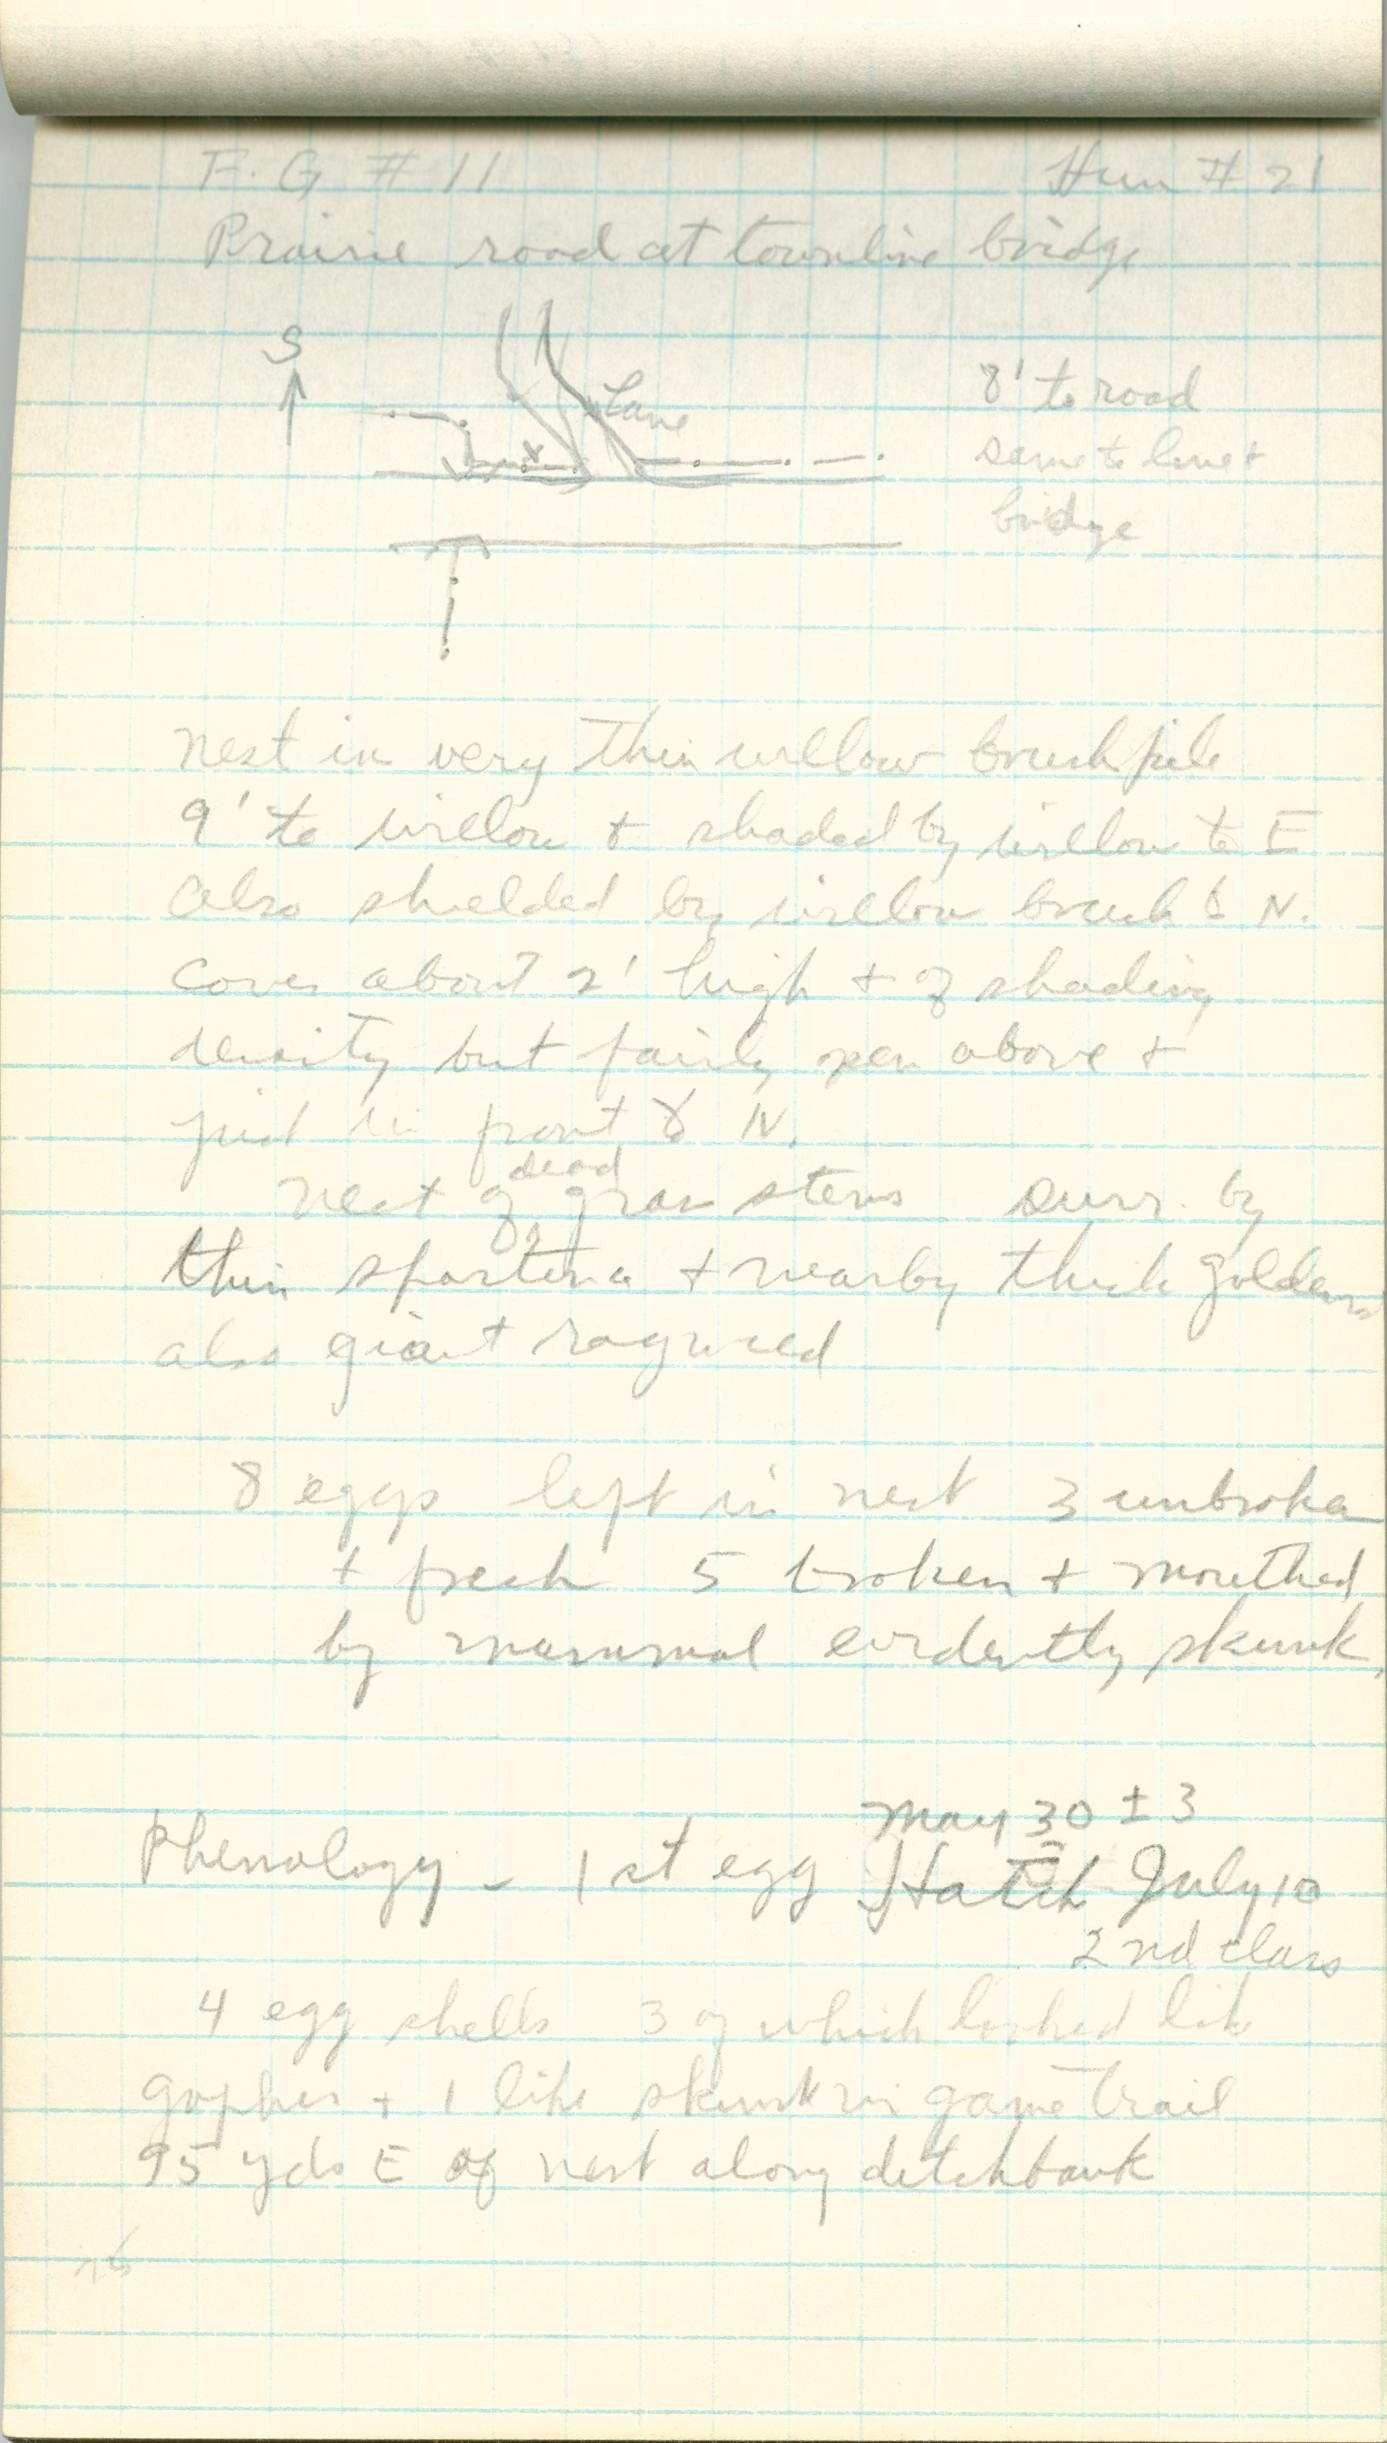 F. G # 11 Hun # 21
Prairie road at townline bridge
S
Lane
8' to road
same to lane +
bridge
Nest in very thin willow brushpile
9' to willow + shaded by willow to E
Also shielded by willow brush to N.
Cover about 2' high + of shading
density but fairly open above +
just in front to N.
dead
Nest of grass stems surr. by
thin spartina + nearby thick goldenrod
also giant ragweed
8 eggs left in nest 3 unbroken
+ fresh 5 broken + mouthed
by mammal evidently skunk.
May 30 ± 3
Phenology - 1st egg Hatch July 10
2nd class
4 egg shells 3 of which looked like
gopher + 1 like skunk in game trail
95 yds E of nest along ditchbank